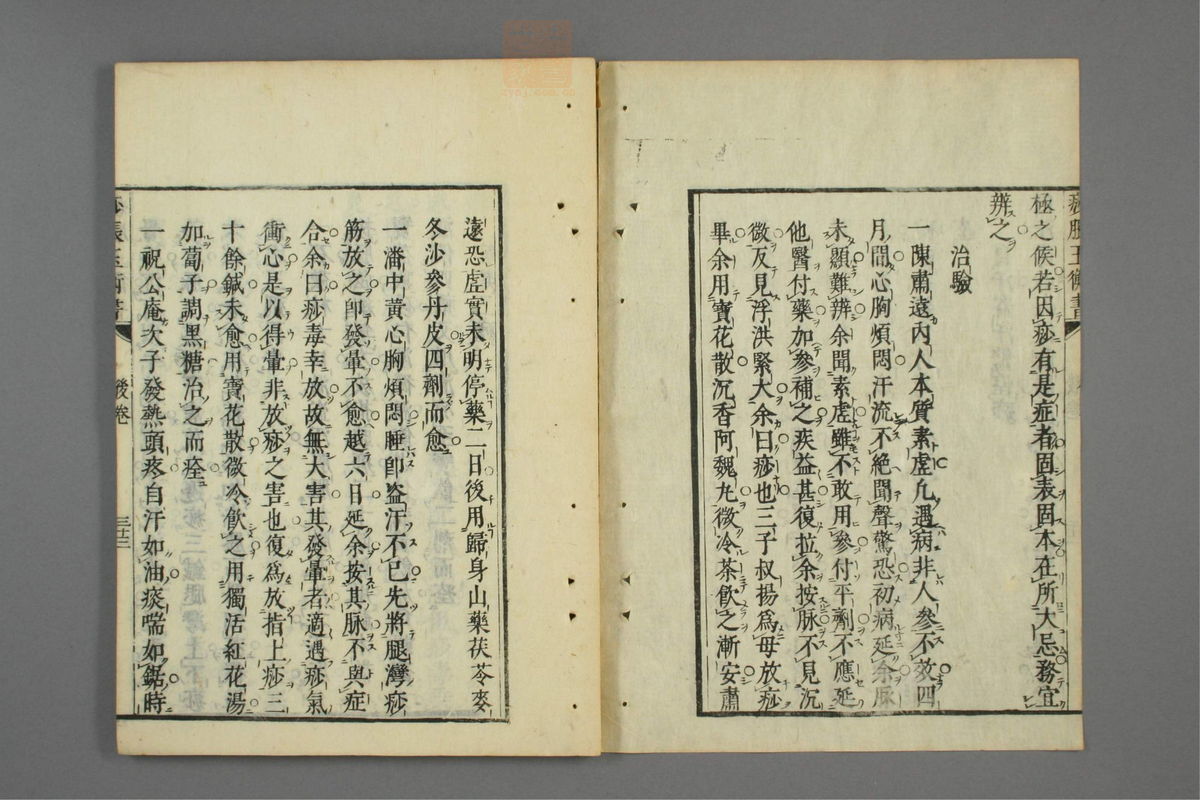 痧脹玉衡書
極之候若因痧有是症者固表固本在所大忌務宜
辨之
治驗
一陳肅遠内人本質素虛凡遇病非人參不效四
月間心胸煩悶汗流不絕聞聲驚恐初病延余脉
未顯難辨余聞素虛雖不敢用參付平劑不應延
他醫付藥加參補之疾益甚復拉余按脉不見沉
微反見浮洪緊大余曰痧也三子叔揚爲母放痧
畢余用寶花散沉香阿魏丸微冷茶飲之漸安肅
遠恐虛實未明停藥二日後用歸身山藥茯苓麥
冬沙參丹皮四劑而愈
一潘中黃心胸煩悶睡卽盗汗不已先將腿灣痧
筋放之卽發暈不愈越六日延余按其脉不與症
合余曰痧毒幸放故無大害其發暈者適遇痧氣
衝心是以得暈非放痧之害也復爲放指上痧三
十餘鍼未愈用寶花散微冷飲之用獨活紅花湯
加蔔子調黑糖治之而痊
一祝公庵次子發熱頭疼自汗如油痰喘如鋸時
痧脹玉衡書 後卷 三十三